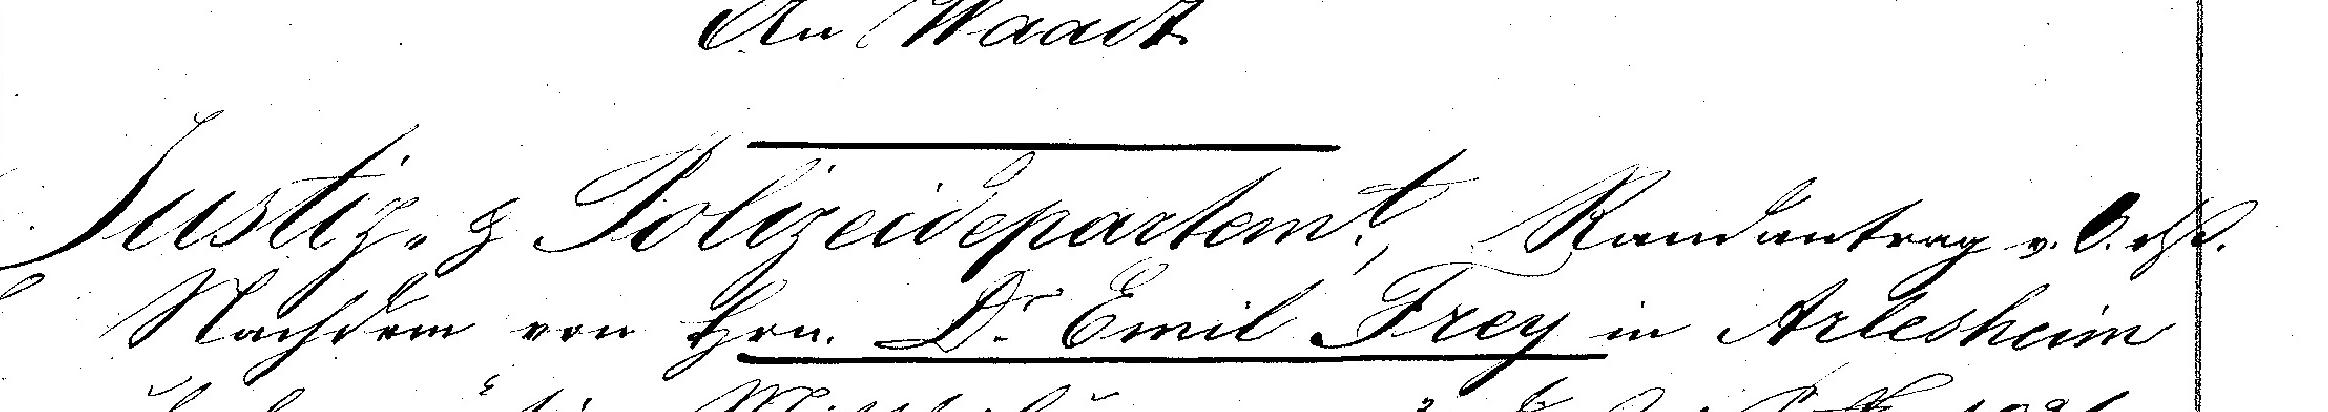 An Waadt
Justiz- & Polizeidepartemt., Randantrag v. 6. ds.
Nachdem von Hrn. Dr Emil Frey in Arlesheim